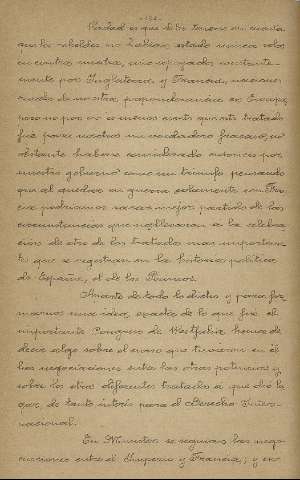 -132-
Verdad es que debe tenerse en cuenta
que los rebeldes no habian estado nunca solos
en contra nuestra, sino apoyados constante-
mente por Inglaterra y Francia, enemigas
de nuestra preponderancia en Europa,
pero no por eso es menos cierto que este tratado
fué para nosotros un verdadero fracaso, no
obstante haberse considerado entonces por
nuestro gobierno como un triunfo pensando
que al quedar en guerra solamente con Fran-
cia podriamos sacar mejor partido de las
circunstancias que nos llevaron a la celebra-
ción de otro de los tratados mas importan-
tes que se registran en la historia politica
de España, el de los Pirineos.
Aparte de todo lo dicho y para for-
marnos una idea exacta de lo que fué el
importante Congreso de Westfalia hemos de
decir algo sobre el curso que tuvieron en él
las negociaciones entre las otras potencias y
sobre los otros diferentes tratados a que dió lu-
gar de tanto interés para el Derecho Inter-
nacional.
En Munster se seguian las nego-
ciaciones entre el Imperio y Francia; y en-